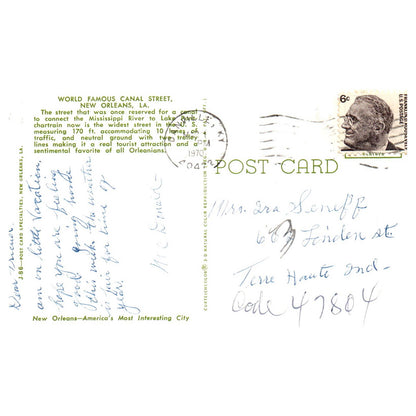 WORLD FAMOUS CANAL STREET,
NEW ORLEANS, LA.
The street that was once reserved for a canal
to connect the Mississippi River to Lake Pont-
chartrain now is the widest street in the U. S.
measuring 170 ft. accommodating 10 lanes of
traffic, and neutral ground with two trolley
lines making it a real tourist attraction and a
sentimental favorite of all Orleanians.
Dear
am on little Vacation,
hope you are feeling
good going home
this week the weather
is fair for time of
year.
J-86—POST CARD SPECIALTIES, NEW ORLEANS, LA.
New Orleans—America's Most Interesting City
KY
PM
1970
6¢
U.S. POSTAGE
POST CARD
Mrs. Ira Seneff
Linden st
Terre Haute Ind-
Code 47804